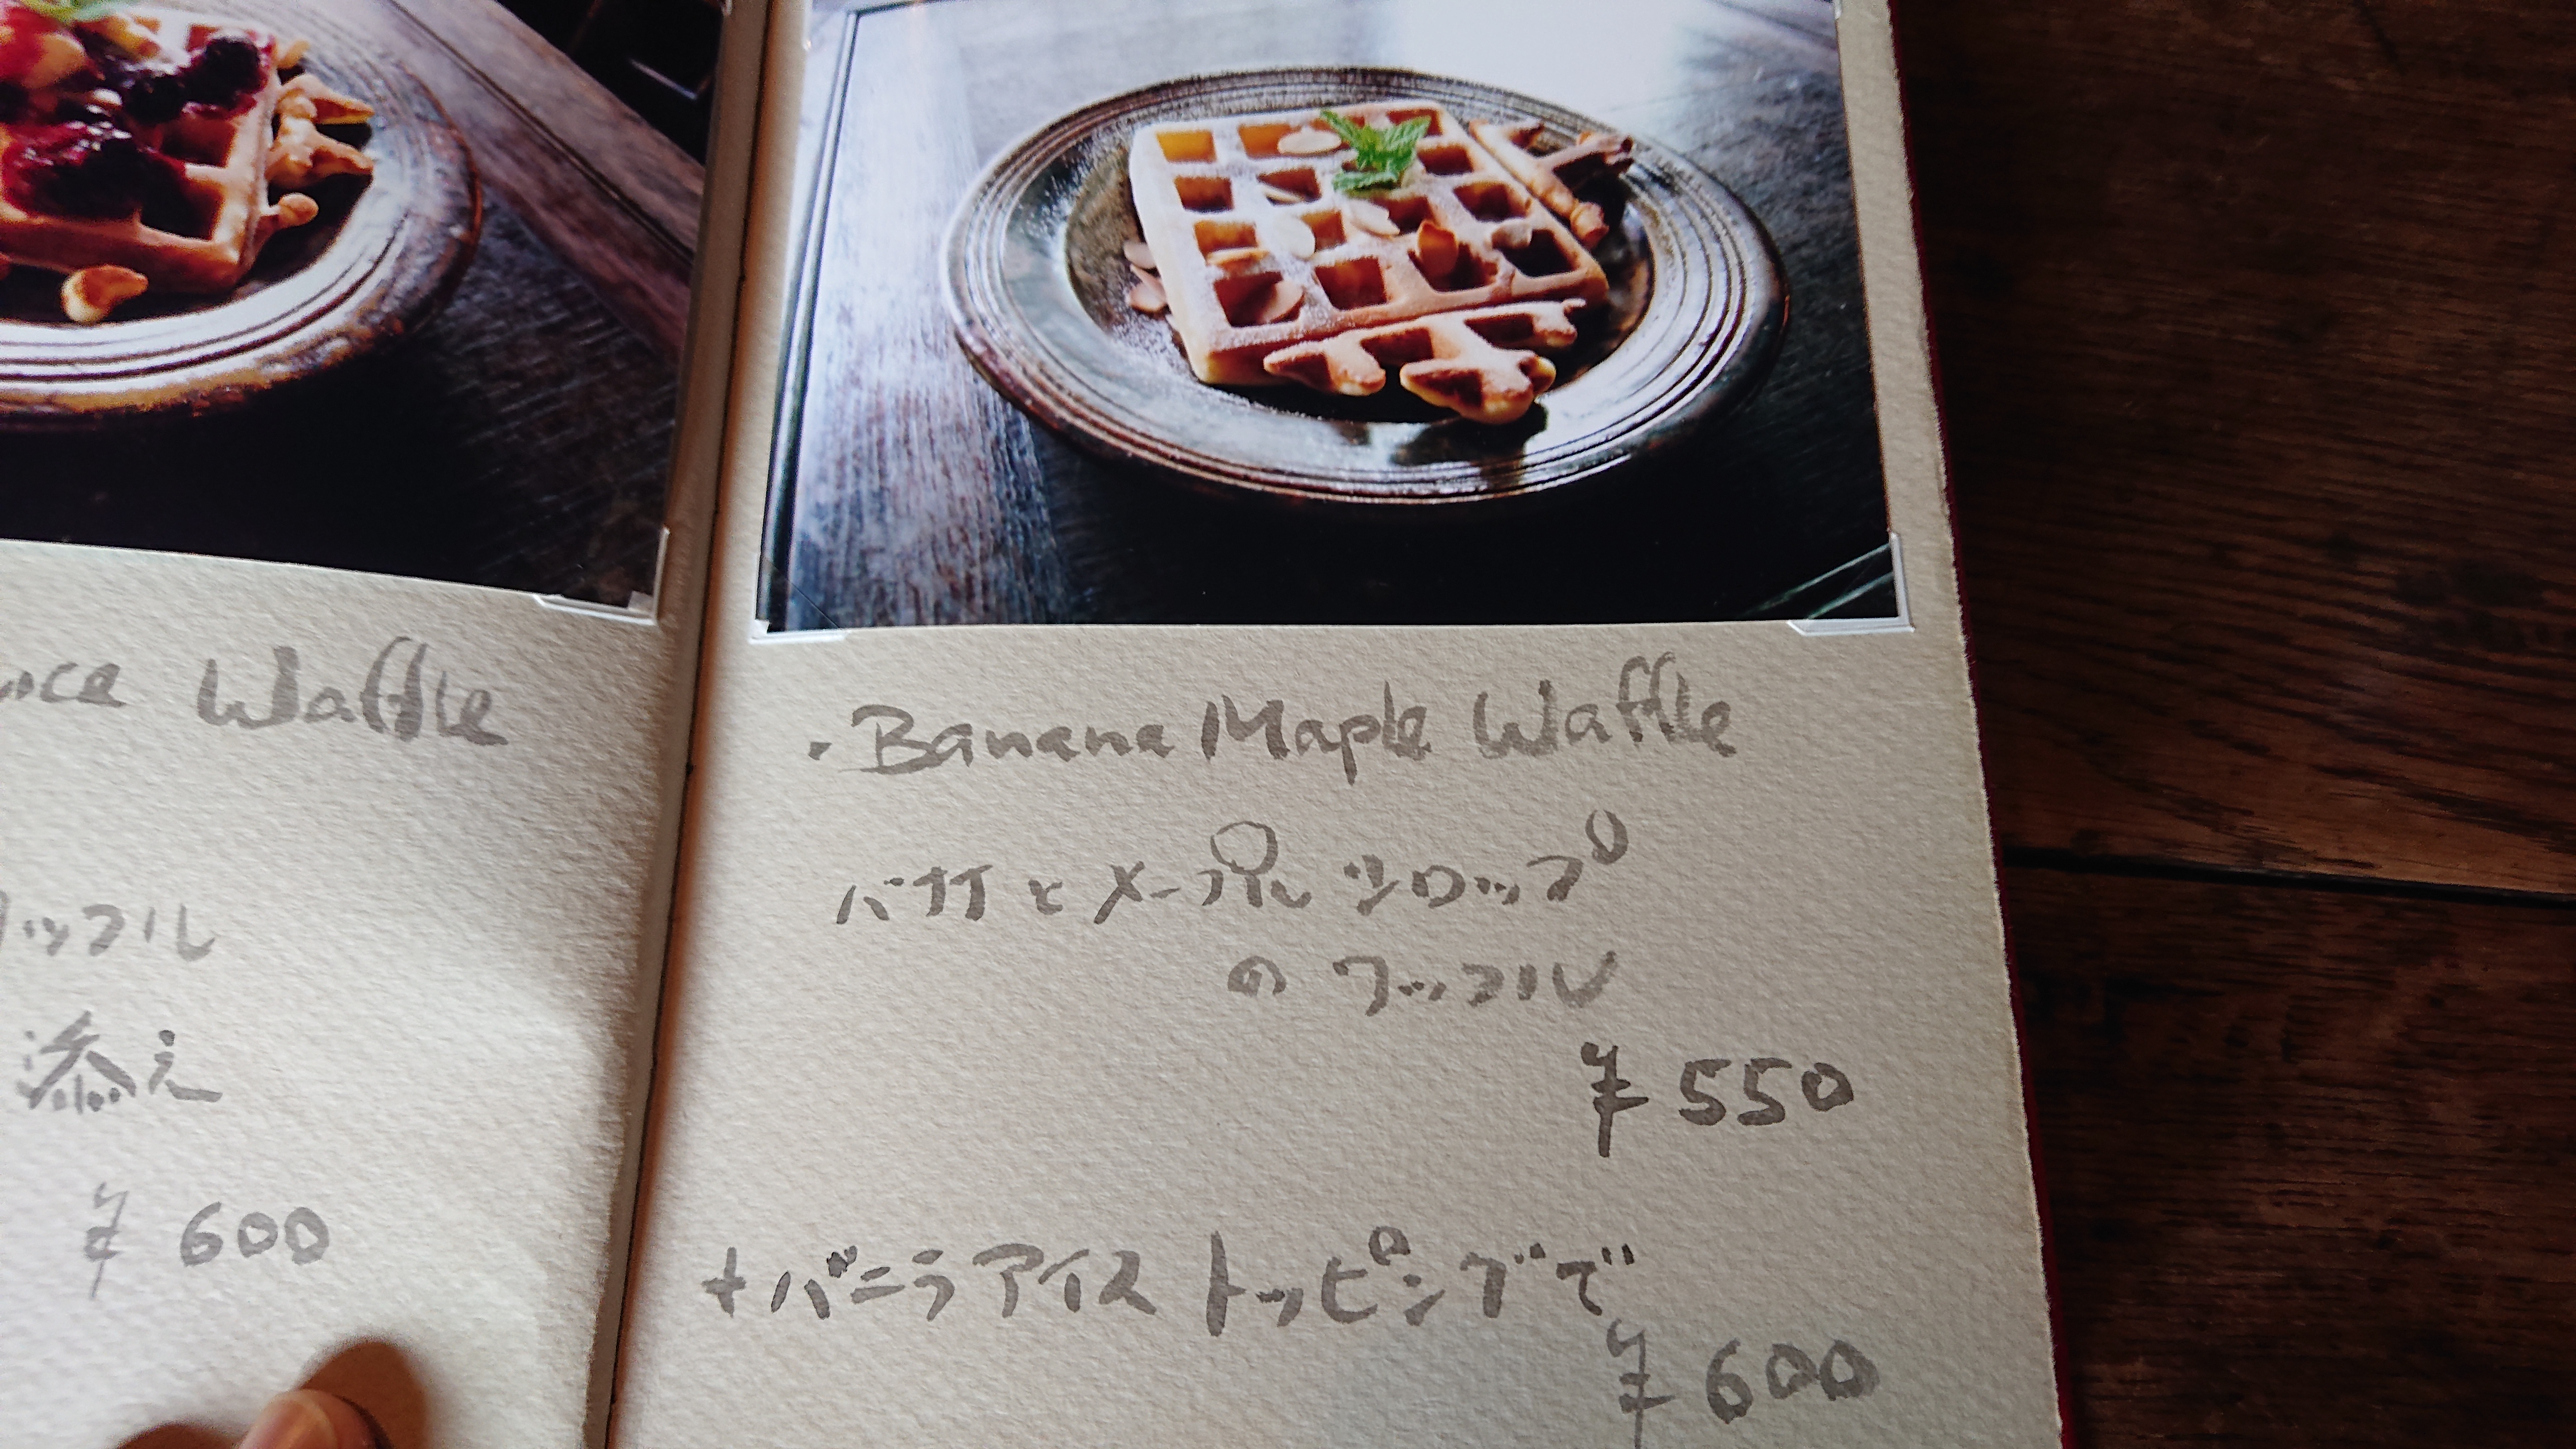 Waffle
ッフル
添え
¥ 600
・Banana Maple Waffle
バナナとメープルシロップ
のワッフル
¥ 550
+バニラアイストッピングで
¥ 600